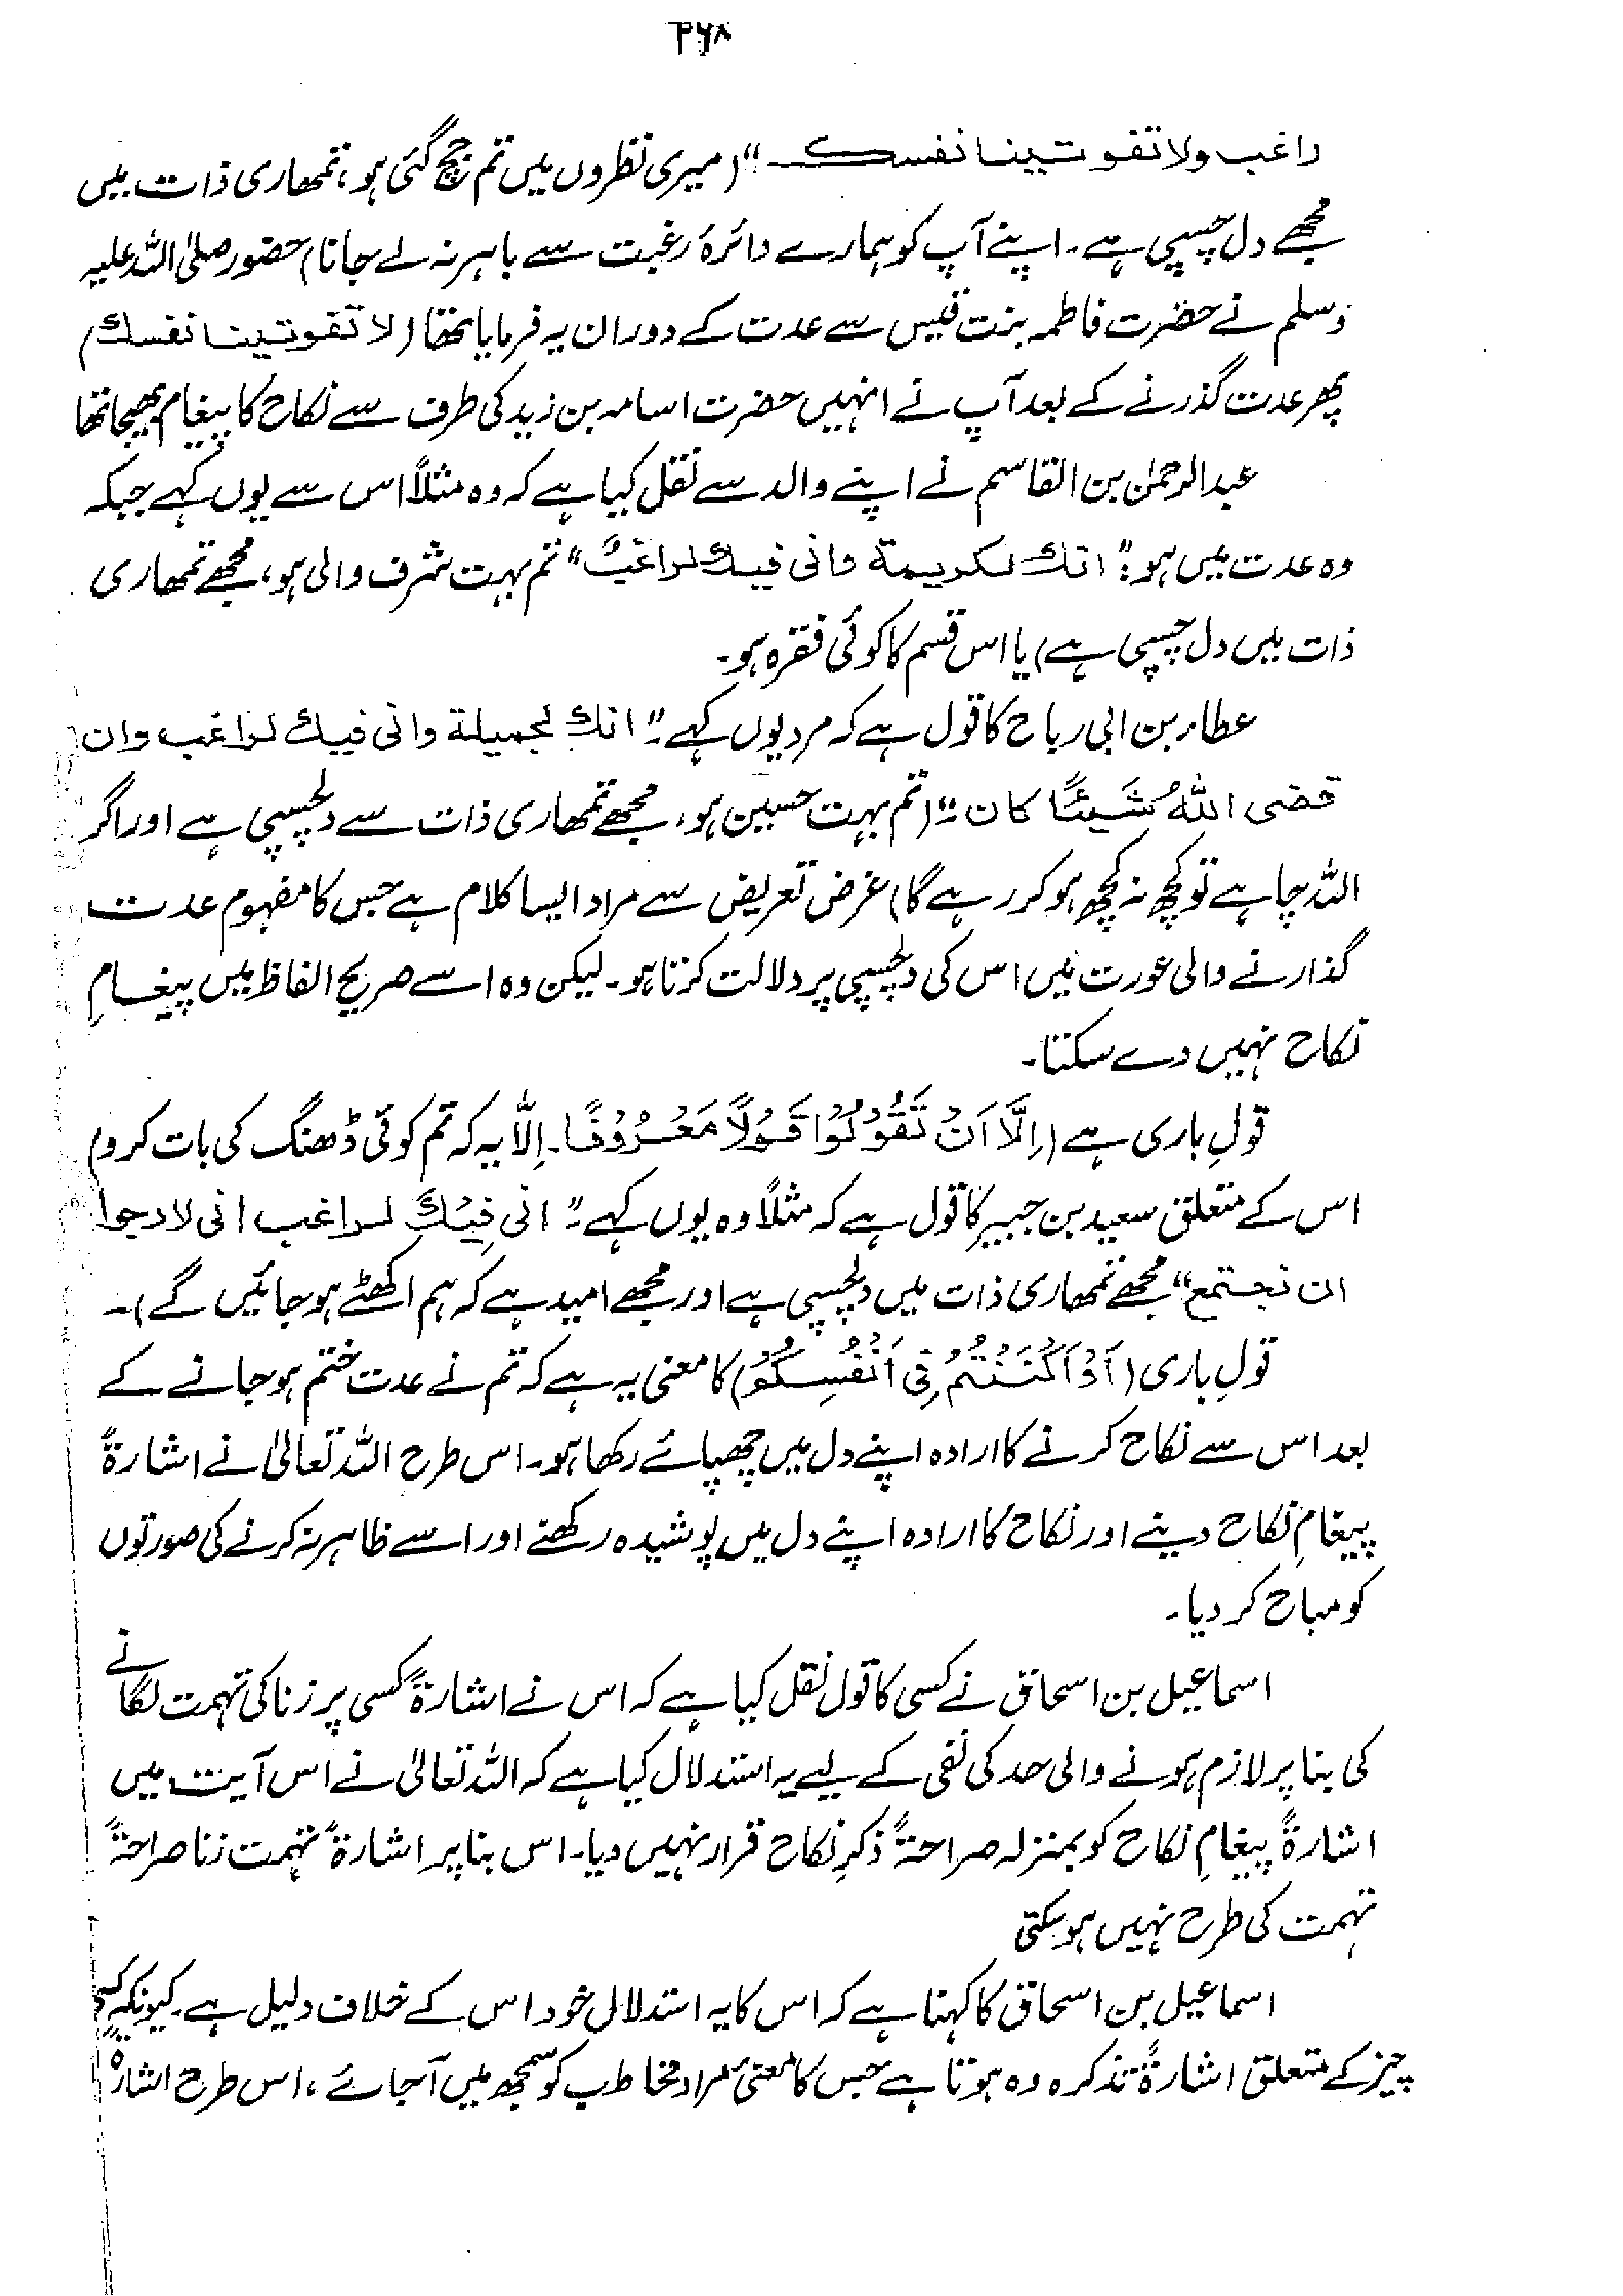 ۲۶۸
راغب ولا تفوتینا نفسک " (میری نظروں میں تم جچ گئی ہو، تمھاری ذات میں
مجھے دل چسپی ہے۔ اپنے آپ کو ہمارے دائرۂ رغبت سے باہر نہ لے جانا) حضور صلی اللہ علیہ
وسلم نے حضرت فاطمہ بنت قیس سے عدت کے دوران یہ فرمایا تھا (لا تفوتینا نفسک)
پھر عدت گذرنے کے بعد آپ نے انہیں حضرت اسامہ بن زید کی طرف سے نکاح کا پیغام بھیجا تھا
عبدالرحمٰن بن القاسم نے اپنے والد سے نقل کیا ہے کہ وہ مثلاً اس سے یوں کہے جبکہ
وہ عدت میں ہو: "انك لكريمة وانی فيك لراغبٌ" تم بہت شرف والی ہو، مجھے تمھاری
ذات میں دل چسپی ہے) یا اس قسم کا کوئی فقرہ ہو۔
عطاء بن ابی رباح کا قول ہے کہ مرد یوں کہے۔ "انك لجميلة وانی فيك لراغب وان
قضی اللهُ شَيئًا كان۔" (تم بہت حسین ہو، مجھے تمھاری ذات سے دلچسپی ہے اور اگر
اللہ چاہے تو کچھ نہ کچھ ہو کر رہے گا) غرض تعریض سے مراد ایسا کلام ہے جس کا مفہوم عدت
گذارنے والی عورت میں اس کی دلچسپی پر دلالت کرتا ہو۔ لیکن وہ اسے صریح الفاظ میں پیغامِ
نکاح نہیں دے سکتا۔
قولِ باری ہے (اِلَّا اَنْ تَقُوْلُوْا قَوْلًا مَعْرُوْفًا۔ اِلّا یہ کہ تم کوئی ڈھنگ کی بات کرو)
اس کے متعلق سعید بن جبیر کا قول ہے کہ مثلاً وہ یوں کہے۔ "انی فِيْكَ لراغب انی لارجوا
ان نجتمع" مجھے تمھاری ذات میں دلچسپی ہے اور مجھے امید ہے کہ ہم اکھٹے ہو جائیں گے)۔
قولِ باری (اَوْ اَكْنَنْتُمْ فِی اَنْفُسِكُمْ) کا معنی یہ ہے کہ تم نے عدت ختم ہو جانے کے
بعد اس سے نکاح کرنے کا ارادہ اپنے دل میں چھپائے رکھا ہو۔ اس طرح اللہ تعالیٰ نے اشارۃً
پیغامِ نکاح دینے اور نکاح کا ارادہ اپنے دل میں پوشیدہ رکھنے اور اسے ظاہر نہ کرنے کی صورتوں
کو مباح کر دیا۔
اسماعیل بن اسحاق نے کسی کا قول نقل کیا ہے کہ اس نے اشارۃً کسی پر زنا کی تہمت لگانے
کی بنا پر لازم ہونے والی حد کی نفی کے لیے یہ استدلال کیا ہے کہ اللہ تعالیٰ نے اس آیت میں
اشارۃً پیغامِ نکاح کو بمنزلہ صراحۃً ذکرِ نکاح قرار نہیں دیا۔ اس بنا پر اشارۃً تہمت زنا صراحۃً
تہمت کی طرح نہیں ہو سکتی
اسماعیل بن اسحاق کا کہنا ہے کہ اس کا یہ استدلال خود اس کے خلاف دلیل ہے۔ کیونکہ کسی
چیز کے متعلق اشارۃً تذکرہ وہ ہوتا ہے جس کا معنیٔ مراد مخاطب کو سمجھ میں آجائے، اس طرح اشارۃً